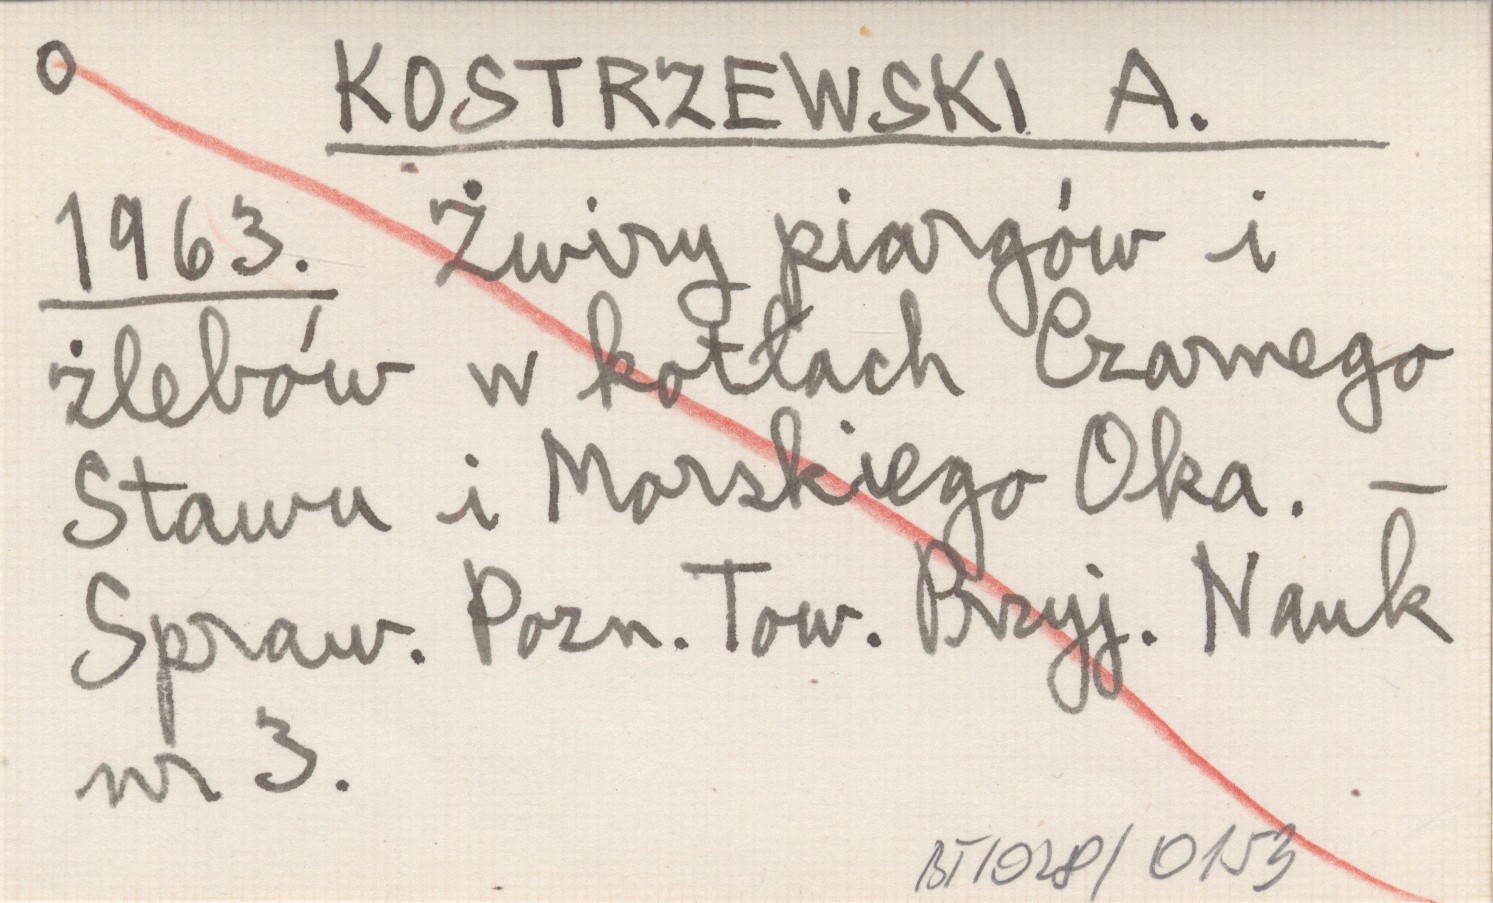 o KOSTRZEWSKI A.
1963. Żwiry piargów i
żlebów w kotłach Czarnego
Stawu i Morskiego Oka. –
Spraw. Pozn. Tow. Przyj. Nauk
nr 3.
BT/028/0153